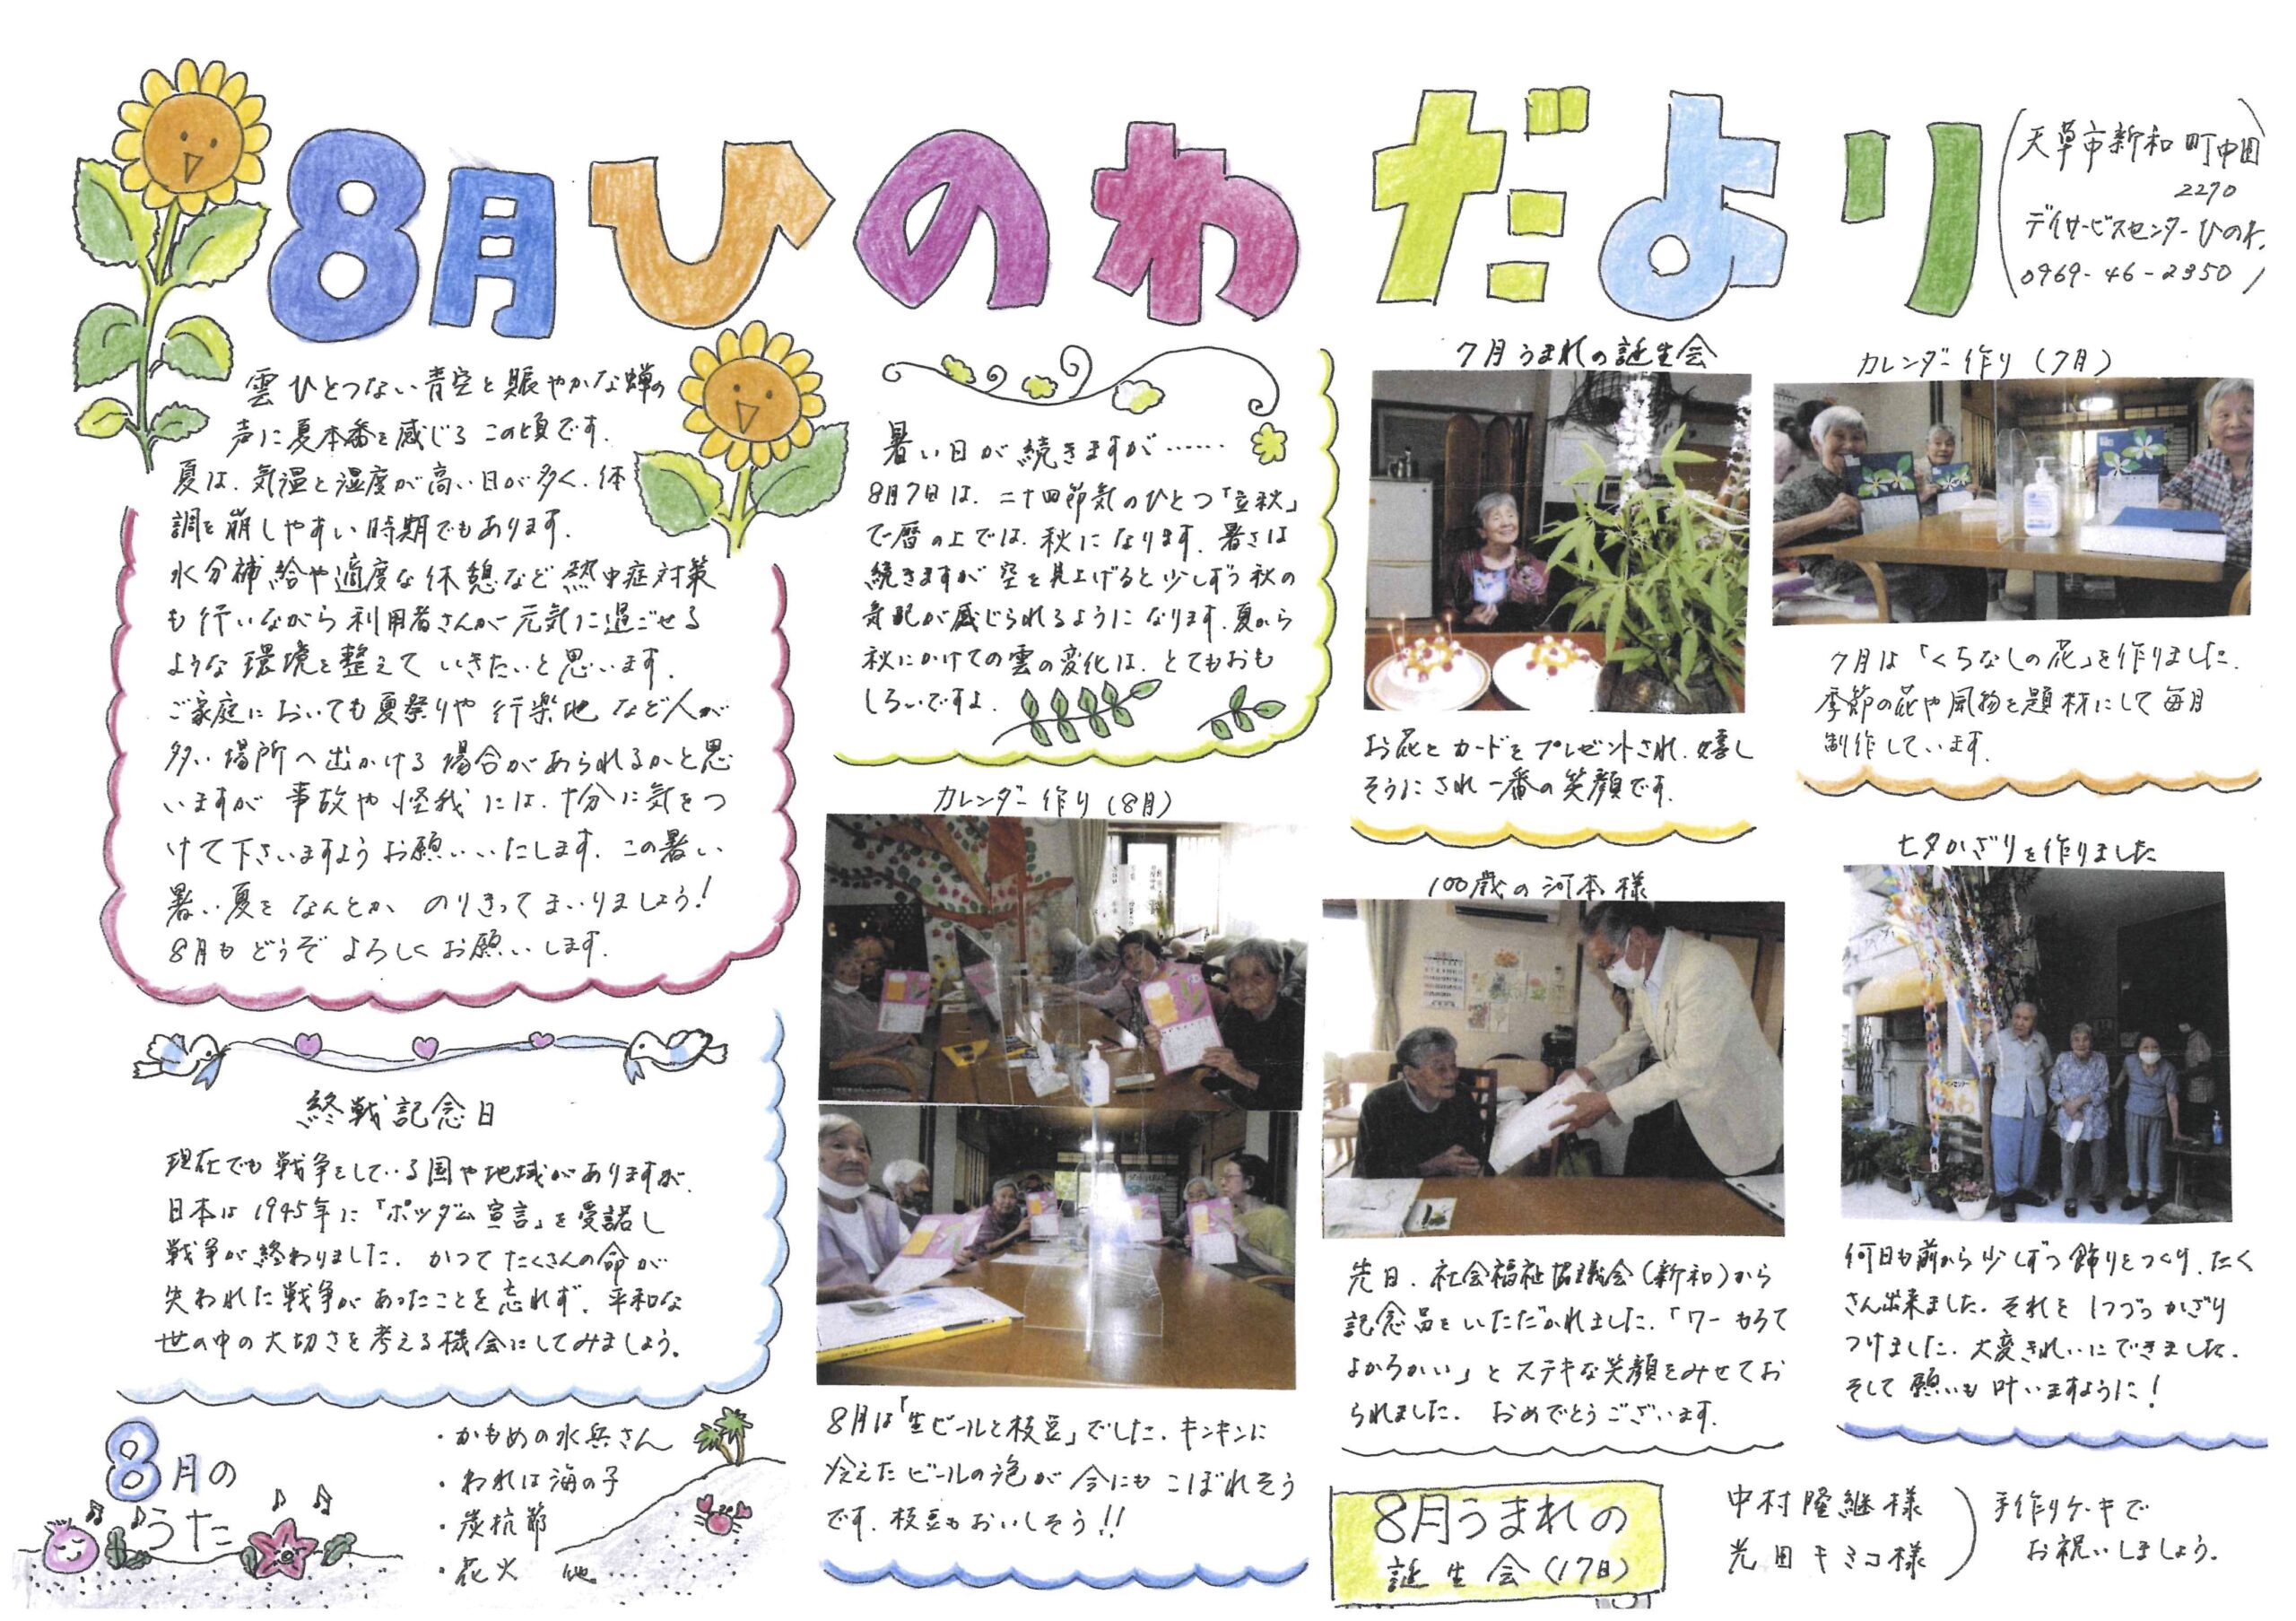 8月ひのわだより
天草市新和町中田
2270
デイサービスセンターひのわ
0969-46-2350
雲ひとつない青空と賑やかな蝉の
声に夏本番を感じるこの頃です。
夏は、気温と湿度が高い日が多く、体
調を崩しやすい時期でもあります。
水分補給や適度な休憩など熱中症対策
も行いながら利用者さんが元気に過ごせる
ような環境を整えていきたいと思います。
ご家庭においても夏祭りや行楽地など人が
多い場所へ出かける場合があられるかと思
いますが事故や怪我には、十分に気をつ
けて下さいますようお願いいたします。この暑い
暑い夏をなんとかのりきってまいりましょう！
8月もどうぞよろしくお願いします。
終戦記念日
現在でも戦争をしている国や地域がありますが、
日本は1945年に「ポツダム宣言」を受諾し
戦争が終わりました。かつてたくさんの命が
失われた戦争があったことを忘れず、平和な
世の中の大切さを考える機会にしてみましょう。
8月の
うた
・かもめの水兵さん
・われは海の子
・炭坑節
・花火 他
暑い日が続きますが……
8月7日は、二十四節気のひとつ「立秋」
で暦の上では、秋になります。暑さは
続きますが空を見上げると少しずつ秋の
気配が感じられるようになります。夏から
秋にかけての雲の変化は、とてもおも
しろいですよ。
カレンダー作り(8月)
8月は「生ビールと枝豆」でした。キンキンに
冷えたビールの泡が今にもこぼれそう
です。枝豆もおいしそう!!
7月うまれの誕生会
お花とカードをプレゼントされ、嬉し
そうにされ一番の笑顔です。
100歳の河本様
先日、社会福祉協議会(新和)から
記念品をいただかれました。「ワーもろて
よかろかい」とステキな笑顔をみせてお
られました。おめでとうございます。
8月うまれの
誕生会(17日)
カレンダー作り(7月)
7月は「くちなしの花」を作りました。
季節の花や風物を題材にして毎月
制作しています。
七夕かざりを作りました
何日も前から少しずつ飾りをつくり、たく
さん出来ました。それを1つづつかざり
つけました。大変きれいにできました。
そして願いも叶いますように！
中村隆継様
光田キミコ様
手作りケーキで
お祝いしましょう。